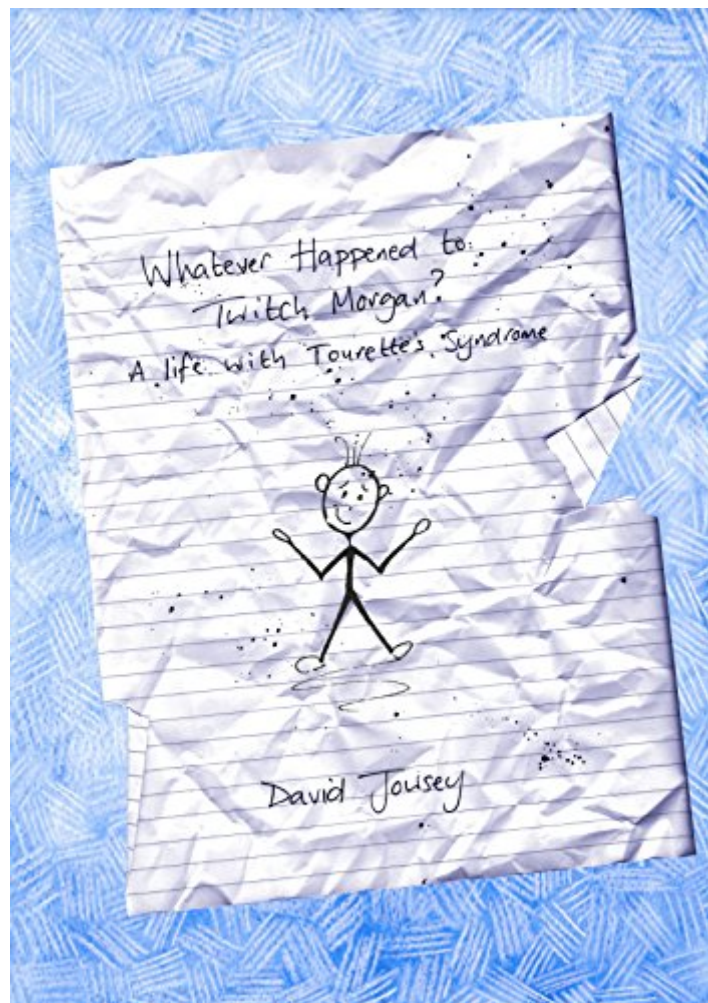 Whatever Happened to
Twitch Morgan?
A life with Tourette's Syndrome
David Jousey